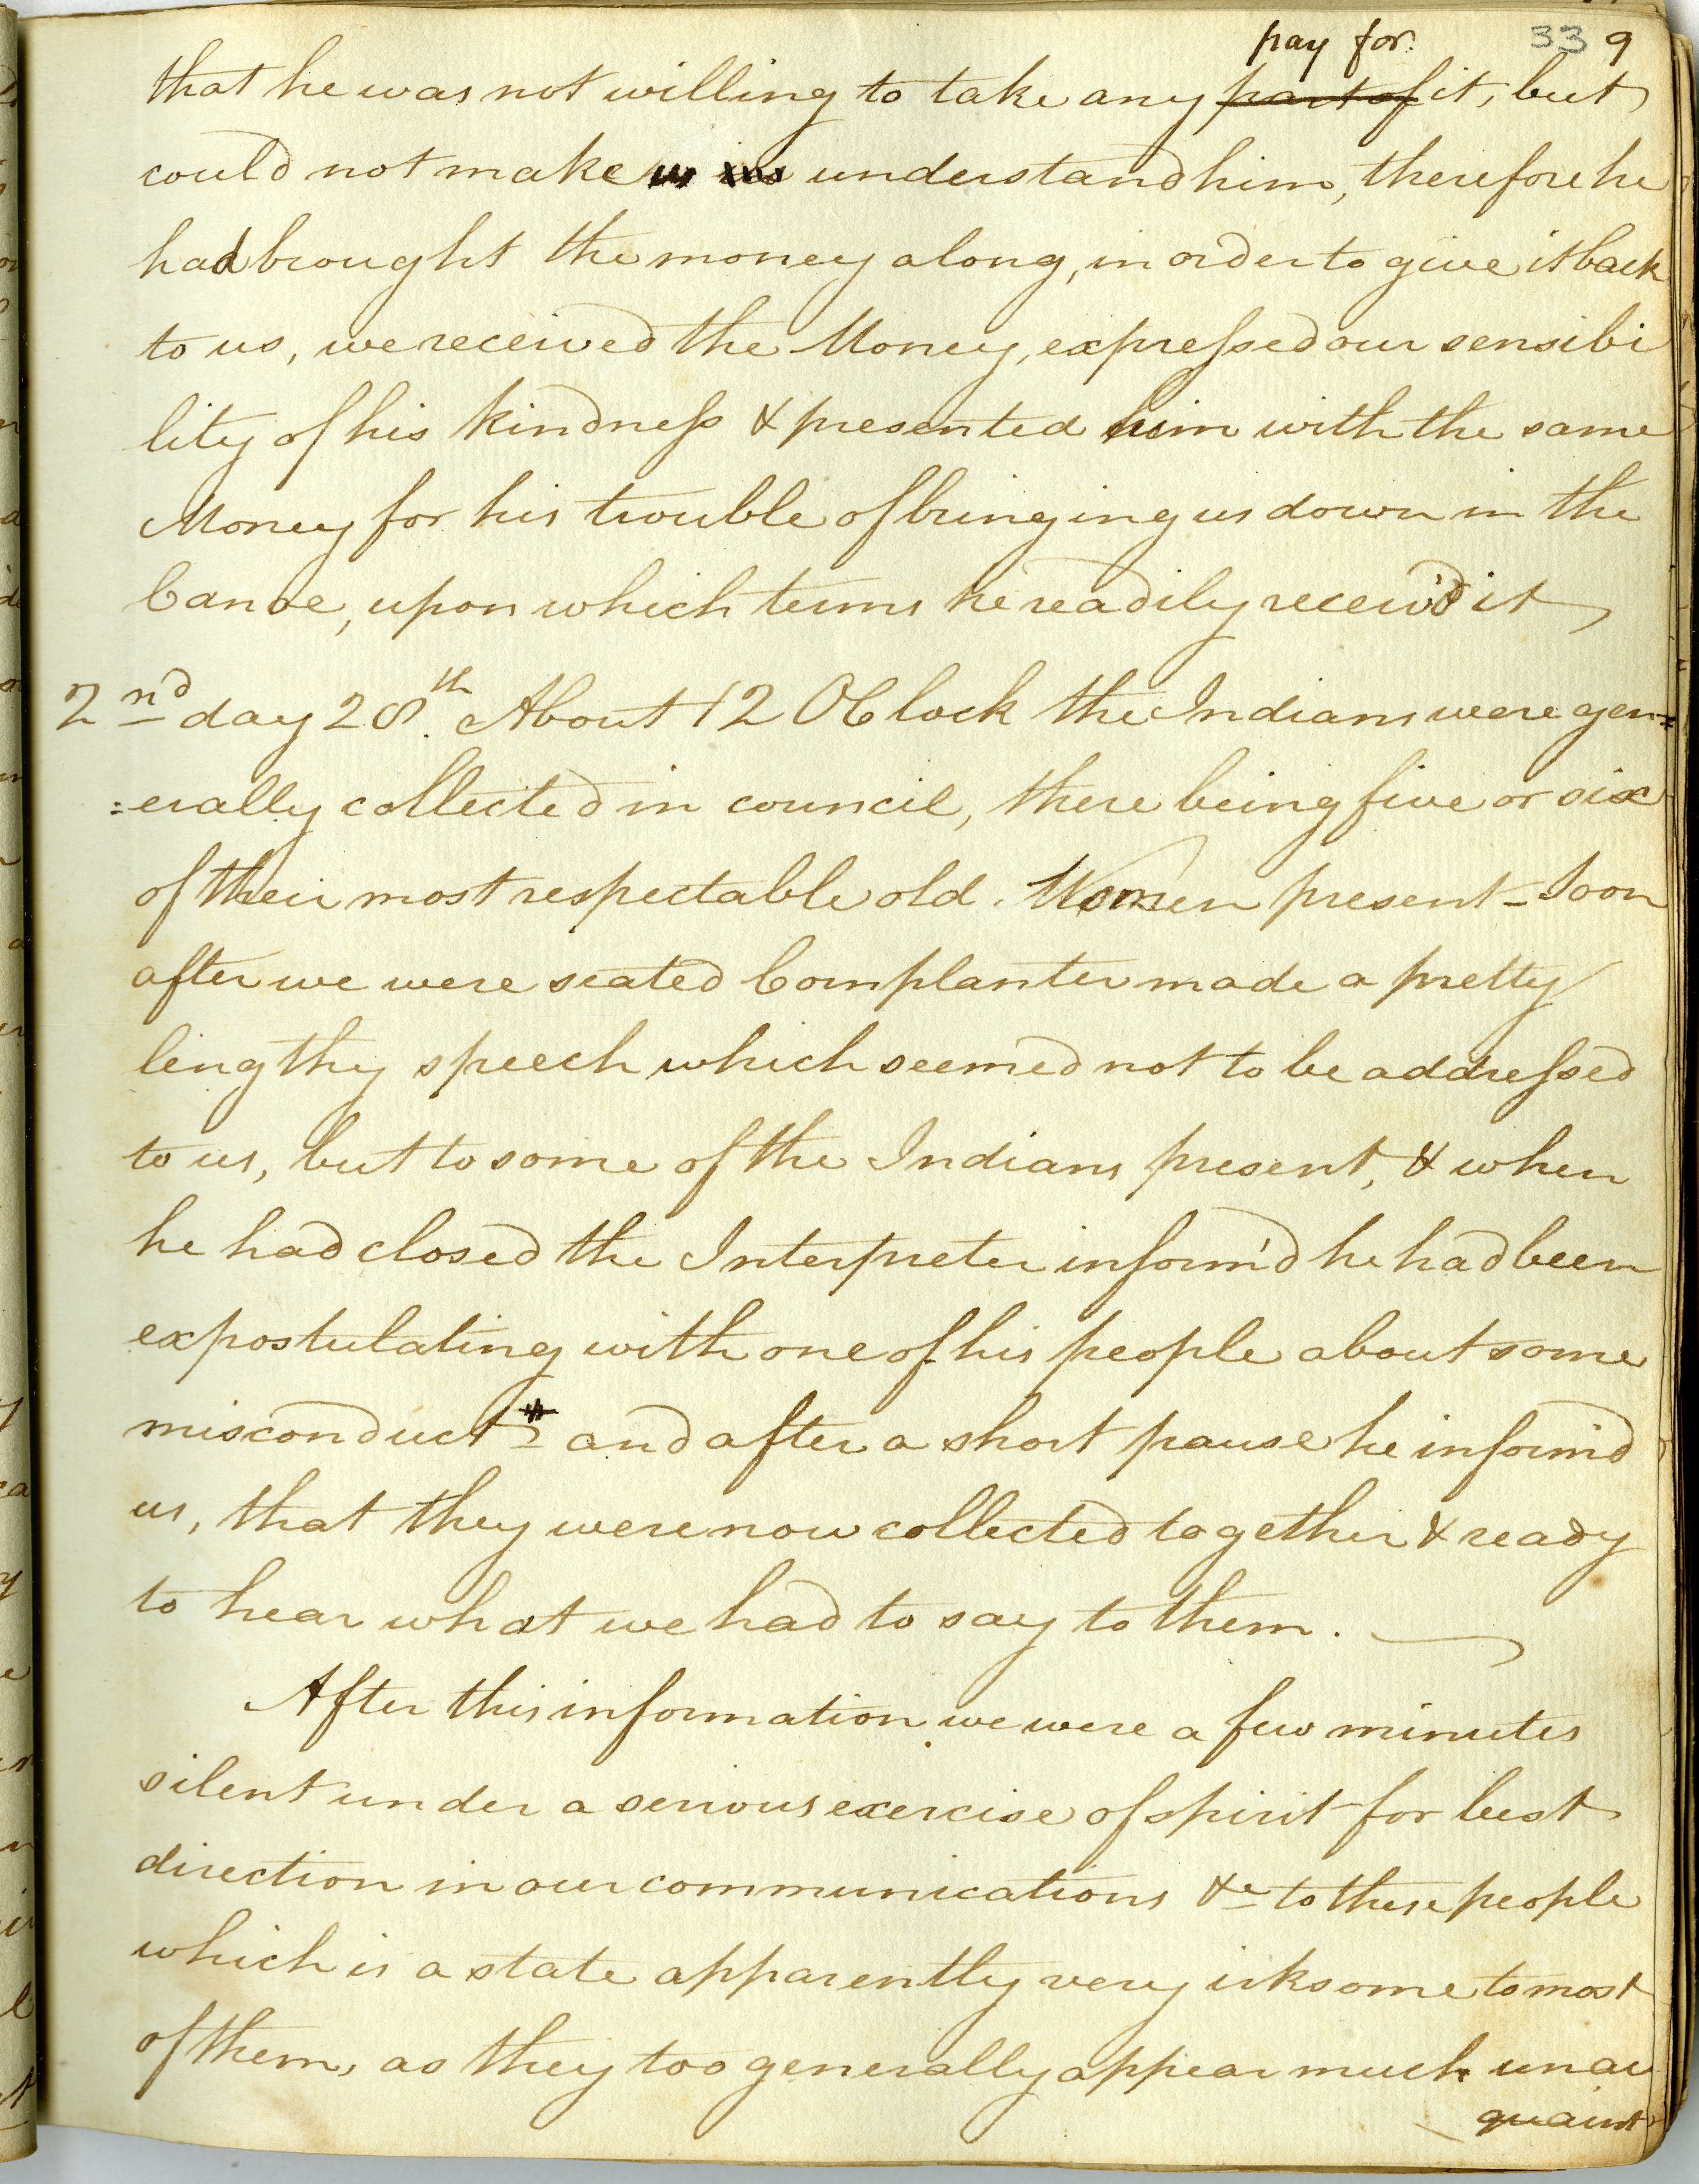 pay for. 33 9
that he was not willing to take any part of it, but
could not make us understand him, therefore he
had brought the money along, in order to give it back
to us, we received the Money, expressed our sensibi
lity of his kindness & presented him with the same
Money for his trouble of bringing us down in the
Canoe, upon which terms he readily receiv'd it
2nd day 28th. About 12 OClock the Indians were gen=
=erally collected in council, there being five or six
of their most respectable old Women present - Soon
after we were seated Cornplanter made a pretty
lengthy speech which seemed not to be addressed
to us, but to some of the Indians present, & when
he had closed the Interpreter inform'd he had been
expostulating with one of his people about some
misconduct - and after a short pause he inform'd
us, that they were now collected together & ready
to hear what we had to say to them.
After this information we were a few minutes
silent under a serious exercise of spirit for best
direction in our communications &c to these people
which is a state apparently very irksome to most
of them, as they too generally appear much unac
quaint